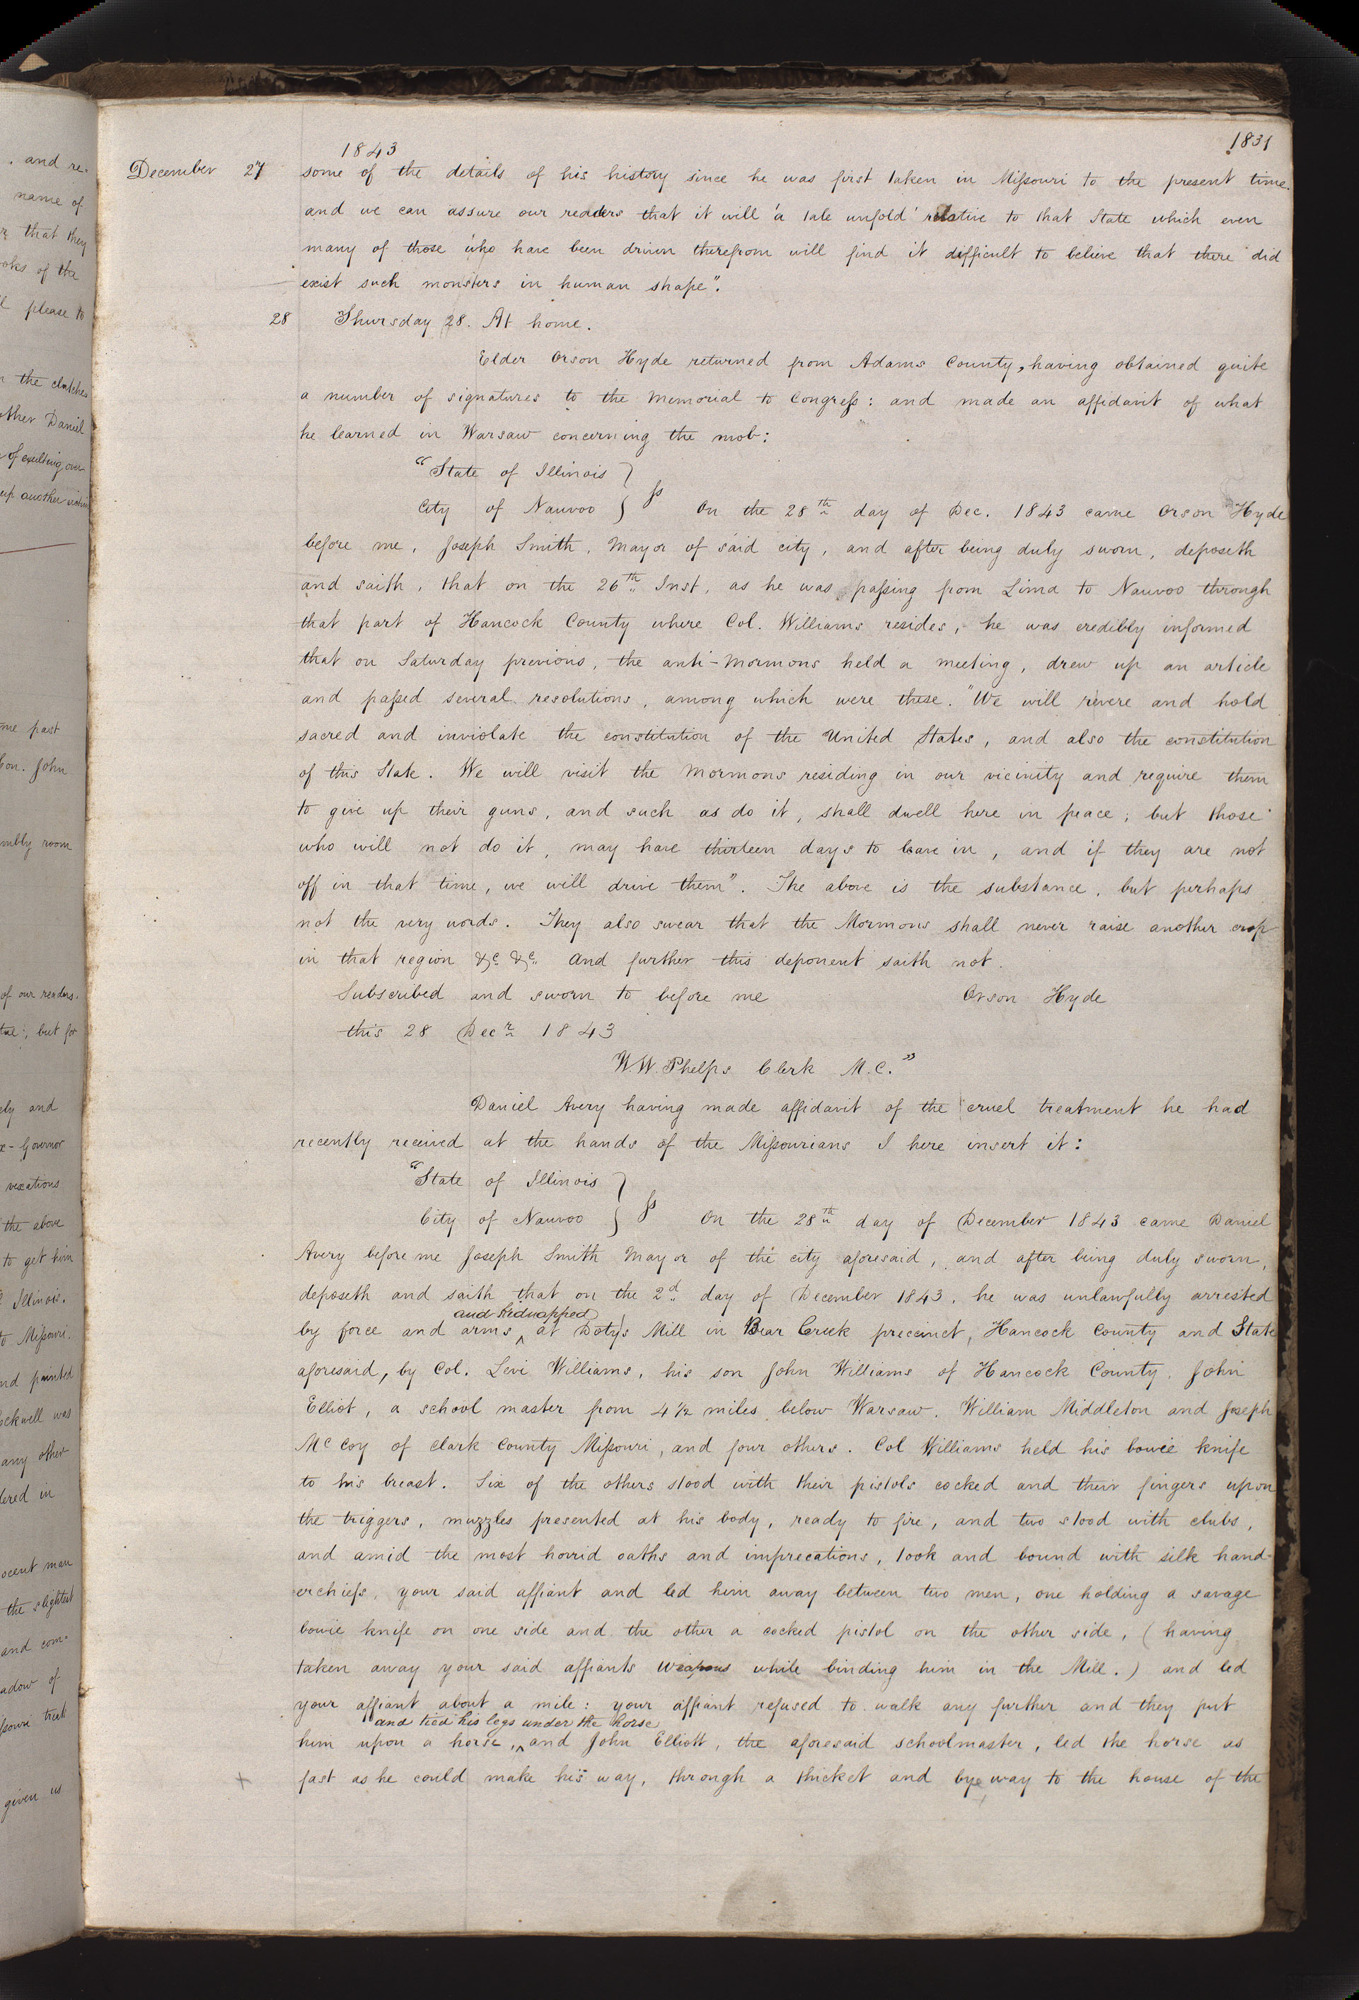 1831
1843
December 27 some of the details of his history since he was first taken in Missouri to the present time.
and we can assure our readers that it will 'a tale unfold' relative to that State which even
many of those who have been driven therefrom will find it difficult to believe that there did
exist such monsters in human shape".
28 Thursday 28. At home.
Elder Orson Hyde returned from Adams County, having obtained quite
a number of signatures to the Memorial to Congress: and made an affidavit of what
he learned in Warsaw concerning the mob:
"State of Illinois }
City of Nauvoo } ss On the 28th day of Dec. 1843 came Orson Hyde
before me, Joseph Smith, Mayor of said city, and after being duly sworn, deposeth
and saith, that on the 26th Inst, as he was passing from Lima to Nauvoo through
that part of Hancock County where Col. Williams resides, he was credibly informed
that on Saturday previous, the anti-Mormons held a meeting, drew up an article
and passed several resolutions, among which were these. "We will revere and hold
sacred and inviolate the constitution of the United States, and also the constitution
of this State. We will visit the Mormons residing in our vicinity and require them
to give up their guns, and such as do it, shall dwell here in peace; but those
who will not do it, may have thirteen days to leave in, and if they are not
off in that time, we will drive them". The above is the substance, but perhaps
not the very words. They also swear that the Mormons shall never raise another crop
in that region &c &c. And further this deponent saith not.
Subscribed and sworn to before me Orson Hyde
this 28 Decr 1843
W. W. Phelps Clerk M. C."
Daniel Avery having made affidavit of the cruel treatment he had
recently received at the hands of the Missourians I here insert it:
"State of Illinois }
City of Nauvoo } ss On the 28th day of December 1843 came Daniel
Avery before me Joseph Smith Mayor of the city aforesaid, and after being duly sworn,
deposeth and saith that on the 2d day of December 1843, he was unlawfully arrested
and kidnapped
by force and arms ^ at Doty's Mill in Bear Creek precinct, Hancock County and State
aforesaid, by Col. Levi Williams, his son John Williams of Hancock County, John
Elliot, a school master from 4½ miles below Warsaw. William Middleton and Joseph
McCoy of Clark County Missouri, and four others. Col Williams held his bowie knife
to his breast. Six of the others stood with their pistols cocked and their fingers upon
the triggers, muzzles presented at his body, ready to fire, and two stood with clubs,
and amid the most horrid oaths and imprecations, took and bound with silk hand-
erchiefs, your said affiant and led him away between two men, one holding a savage
bowie knife on one side and the other a cocked pistol on the other side, (having
taken away your said affiants weapons while binding him in the Mill.) and led
your affiant about a mile: your affiant refused to walk any further and they put
and tied his legs under the horse
him upon a horse, ^ and John Elliott, the aforesaid schoolmaster, led the horse as
+ fast as he could make his way, through a thicket and bye way to the house of the
. and re-
name of
that they
ooks of the
please to
the clutches
other Daniel
of exulting over
up another victim
me past
Gon. John
mbly room
of our readers.
but for
ely and
x-Governor
vexations
the above
to get him
Illinois.
to Missouri.
nd painted
ockwell was
any other
dered in
ocent man
the slightest
and com-
adow of
given us